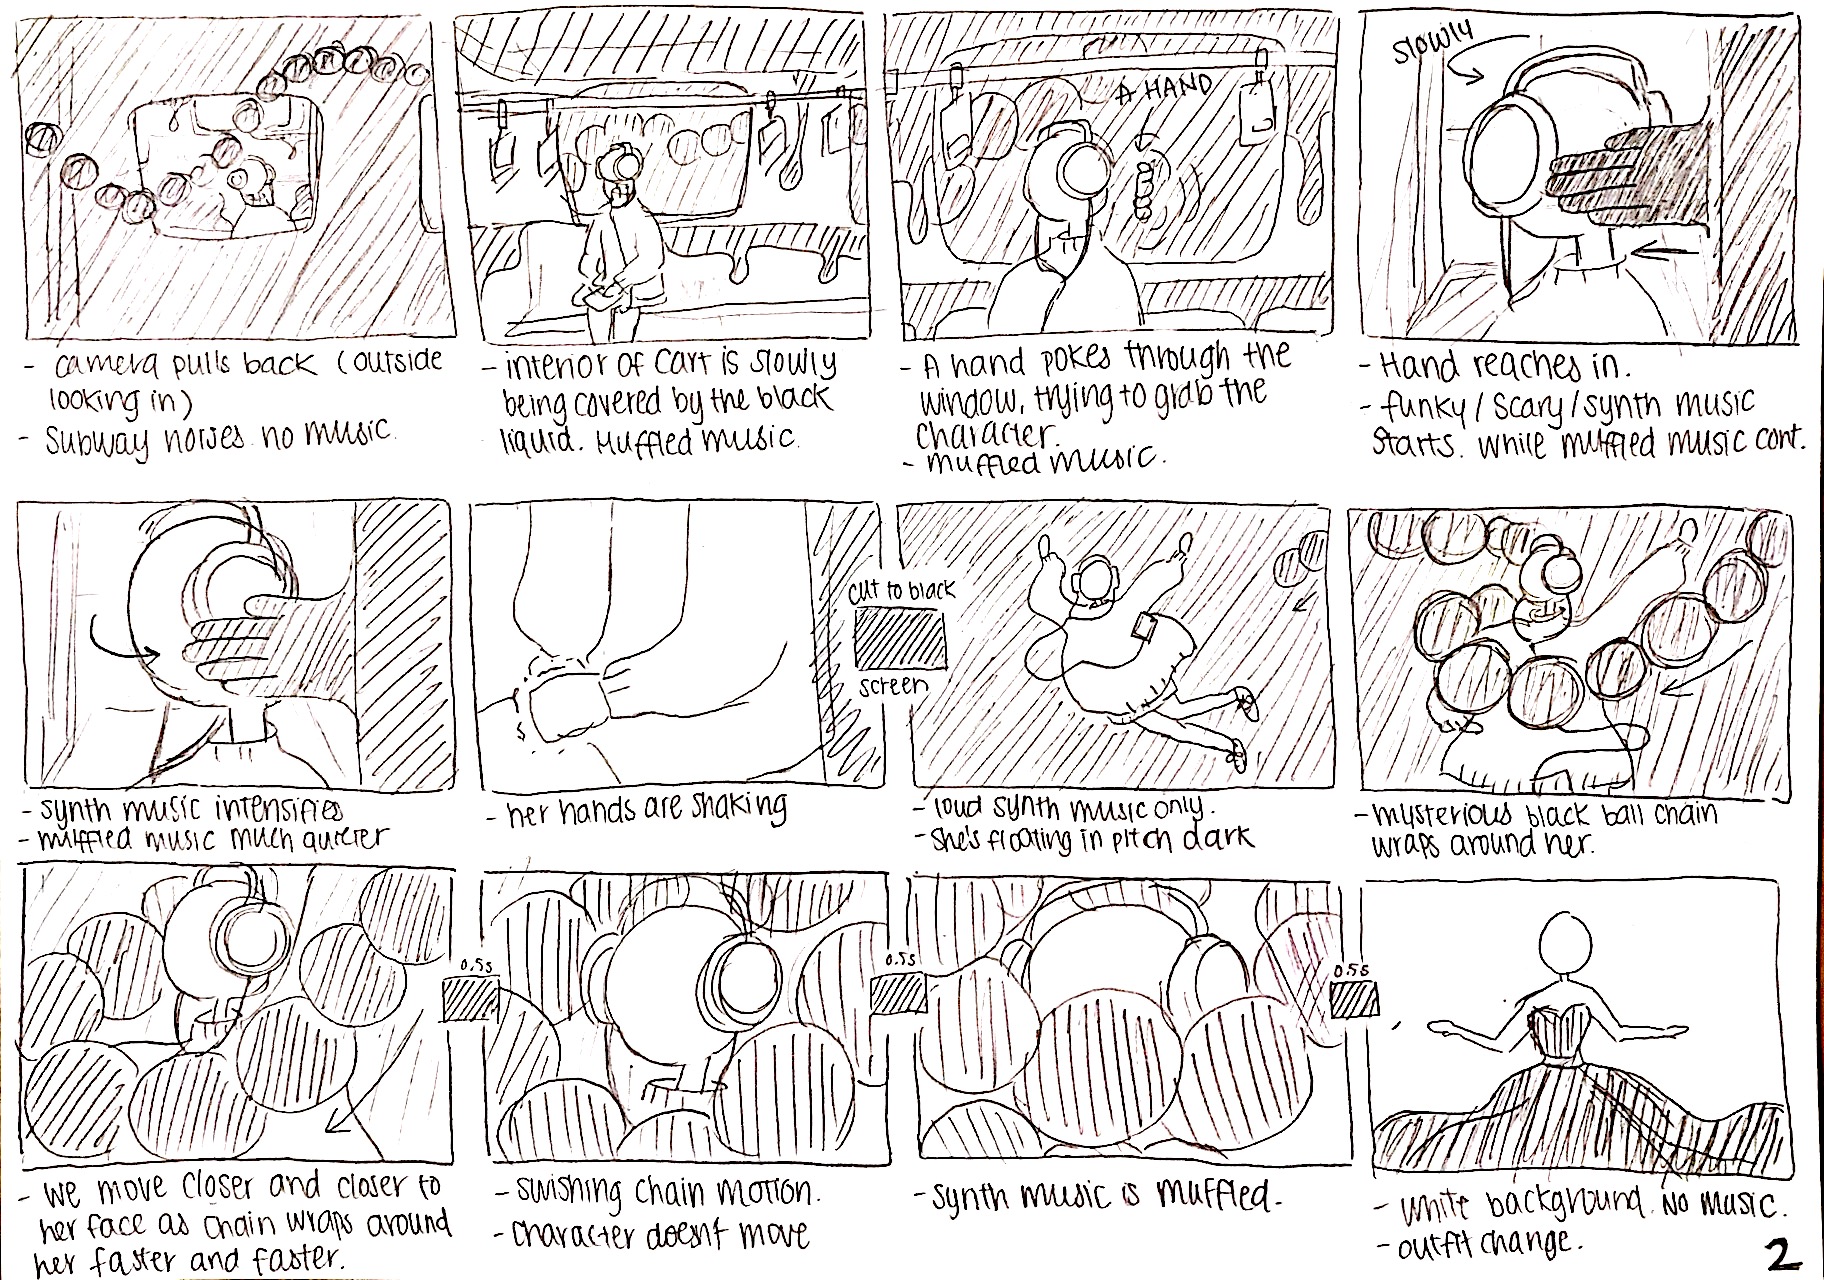 - camera pulls back (outside
looking in)
- Subway noises. no music.
- interior of cart is slowly
being covered by the black
liquid. Muffled music.
A HAND
- A hand pokes through the
window, trying to grab the
character.
- muffled music.
slowly
- Hand reaches in.
- funky/scary/synth music
starts. while muffled music cont.
- synth music intensifies
- muffled music much quieter
- her hands are shaking
cut to black
screen
- loud synth music only.
- she's floating in pitch dark
- mysterious black ball chain
wraps around her.
- we move closer and closer to
her face as chain wraps around
her faster and faster.
0.5s
- swishing chain motion.
- character doesnt move
0.5s
- synth music is muffled.
0.5s
- white background. No music.
- outfit change.
2